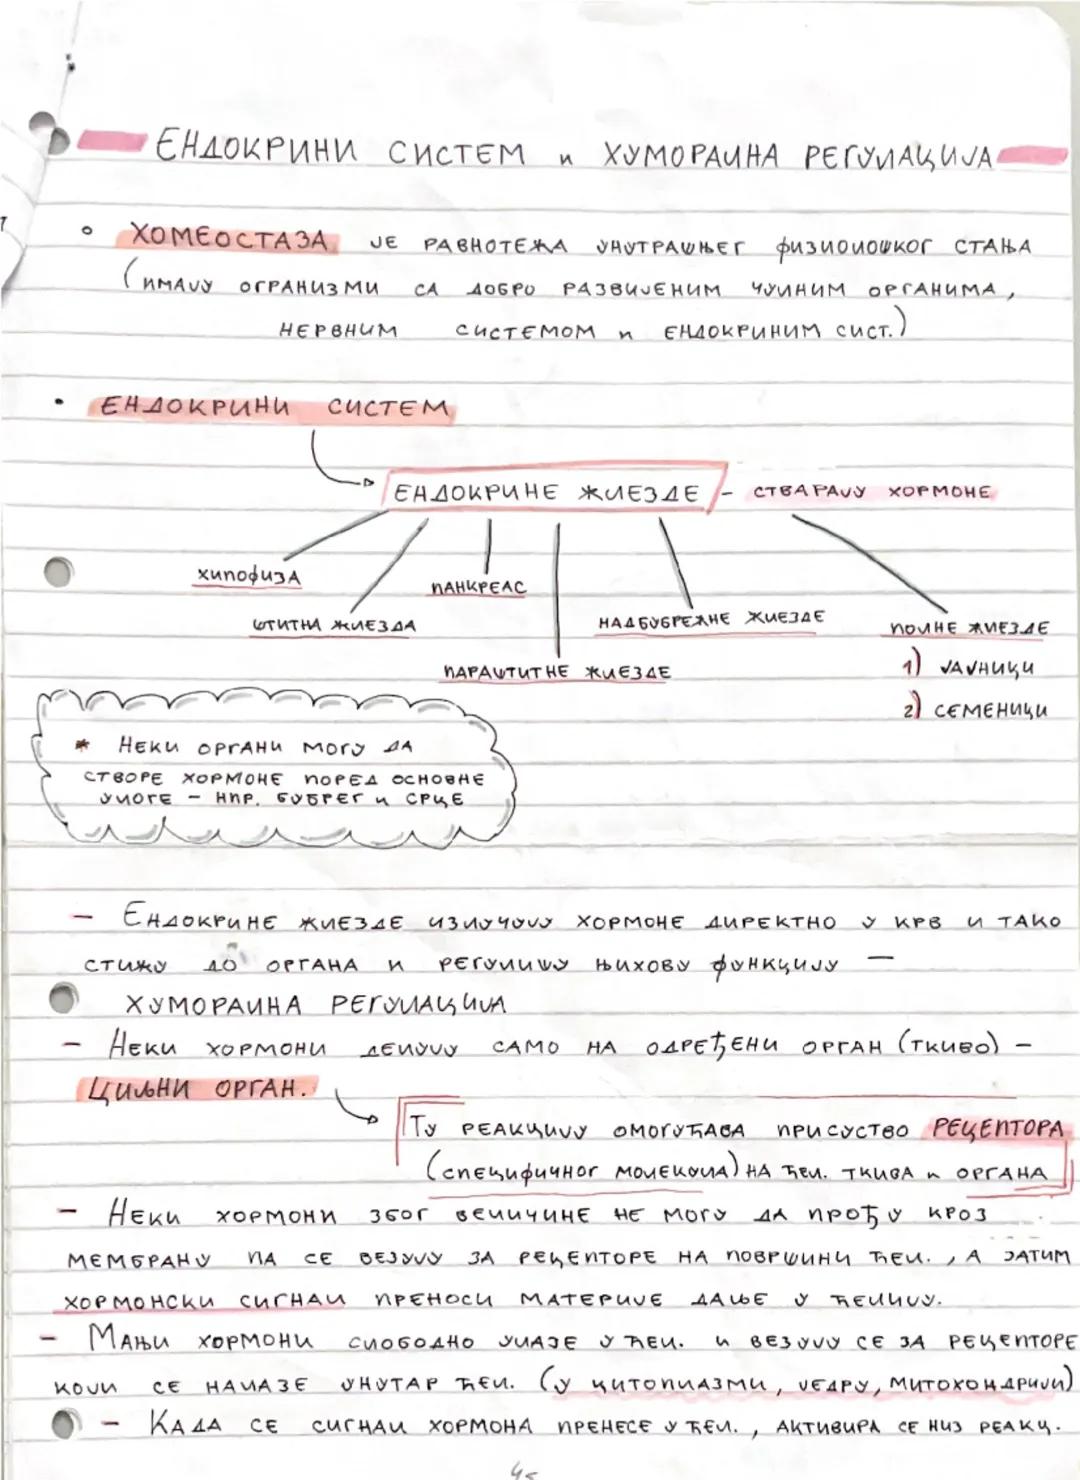 ЕНДОКРИНИ СИСТЕМ и ХУМОРАЛНА РЕГУЛАЦИЈА
ХОМЕОСТАЗА ЈЕ РАВНОТЕЖА УНУТРАШЊЕГ ФИЗИОЛОШКОГ СТАЊА
(ИМАЈУ ОГРАНИЗМИ СА ДОБРО РАЗВИЈЕНИМ ЧУЛНИМ ОРГАНИМА,
НЕРВНИМ СИСТЕМОМ И ЕНДОКРИНИМ СИСТ.)
ЕНДОКРИНИ СИСТЕМ
ЕНДОКРИНЕ ЖЛЕЗДЕ - СТВАРАЈУ ХОРМОНЕ
ХИПОФИЗА
ПАНКРЕАС
ШТИТНА ЖЛЕЗДА
НАДБУБРЕЖНЕ ЖЛЕЗДЕ
ПОЛНЕ ЖЛЕЗДЕ
ПАРАШТИТНЕ ЖЛЕЗДЕ
1) ЈАЈНИЦИ
2) СЕМЕНИЦИ
* НЕКИ ОРГАНИ МОГУ ДА
СТВОРЕ ХОРМОНЕ ПОРЕД ОСНОВНЕ
УЛОГЕ - НПР. БУБРЕГ И СРЦЕ
- ЕНДОКРИНЕ ЖЛЕЗДЕ ИЗЛУЧУЈУ ХОРМОНЕ ДИРЕКТНО У КРВ И ТАКО
СТИЖУ ДО ОРГАНА И РЕГУЛИШУ ЊИХОВУ ФУНКЦИЈУ -
ХУМОРАЛНА РЕГУЛАЦИЈА
- НЕКИ ХОРМОНИ ДЕЛУЈУ САМО НА ОДРЕЂЕНИ ОРГАН (ТКИВО) -
ЦИЉНИ ОРГАН.
ТУ РЕАКЦИЈУ ОМОГУЋАВА ПРИСУСТВО РЕЦЕПТОРА
(СПЕЦИФИЧНОГ МОЛЕКУЛА) НА ЋЕЛ. ТКИВА И ОРГАНА
- НЕКИ ХОРМОНИ ЗБОГ ВЕЛИЧИНЕ НЕ МОГУ ДА ПРОЂУ КРОЗ
МЕМБРАНУ ПА СЕ ВЕЗУЈУ ЗА РЕЦЕПТОРЕ НА ПОВРШИНИ ЋЕЛ., А ЗАТИМ
ХОРМОНСКИ СИГНАЛ ПРЕНОСИ МАТЕРИЈЕ ДАЉЕ У ЋЕЛИЈУ.
- МАЊИ ХОРМОНИ СЛОБОДНО УЛАЗЕ У ЋЕЛ. И ВЕЗУЈУ СЕ ЗА РЕЦЕПТОРЕ
КОЈИ СЕ НАЛАЗЕ УНУТАР ЋЕЛ. (У ЦИТОПЛАЗМИ, ЈЕДРУ, МИТОХОНДРИЈИ)
- КАДА СЕ СИГНАЛ ХОРМОНА ПРЕНЕСЕ У ЋЕЛ., АКТИВИРА СЕ НИЗ РЕАКЦ.